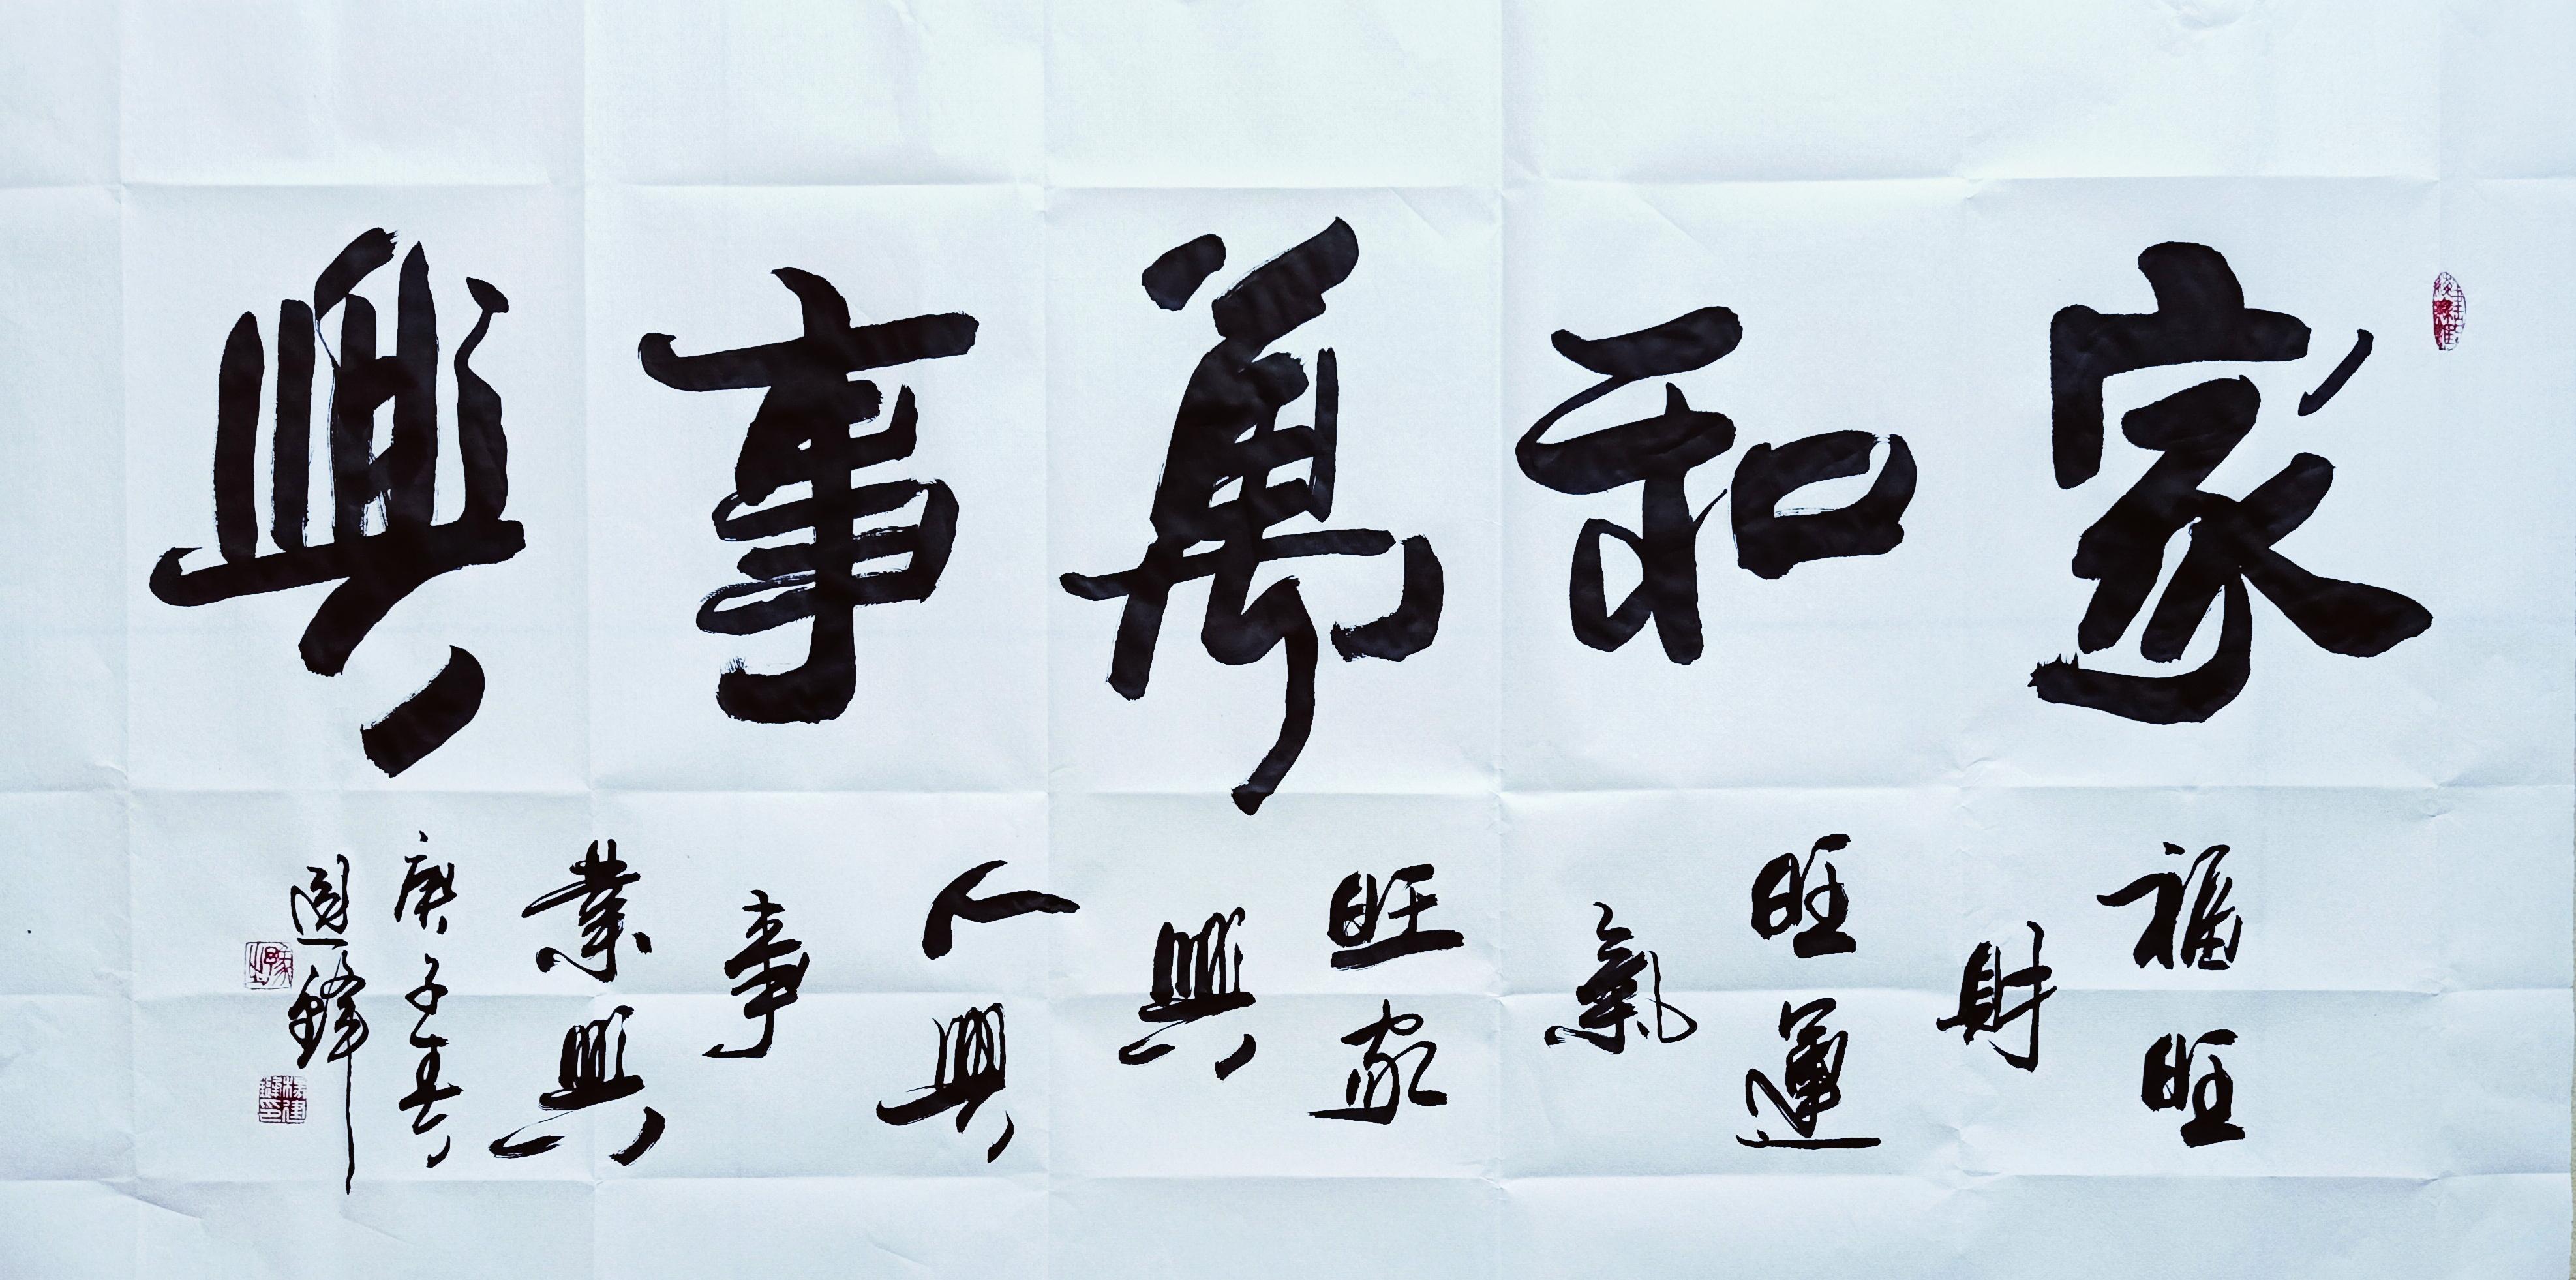 家和萬事興
福旺財旺運氣旺家興人興事業興
庚子春
圓鋒